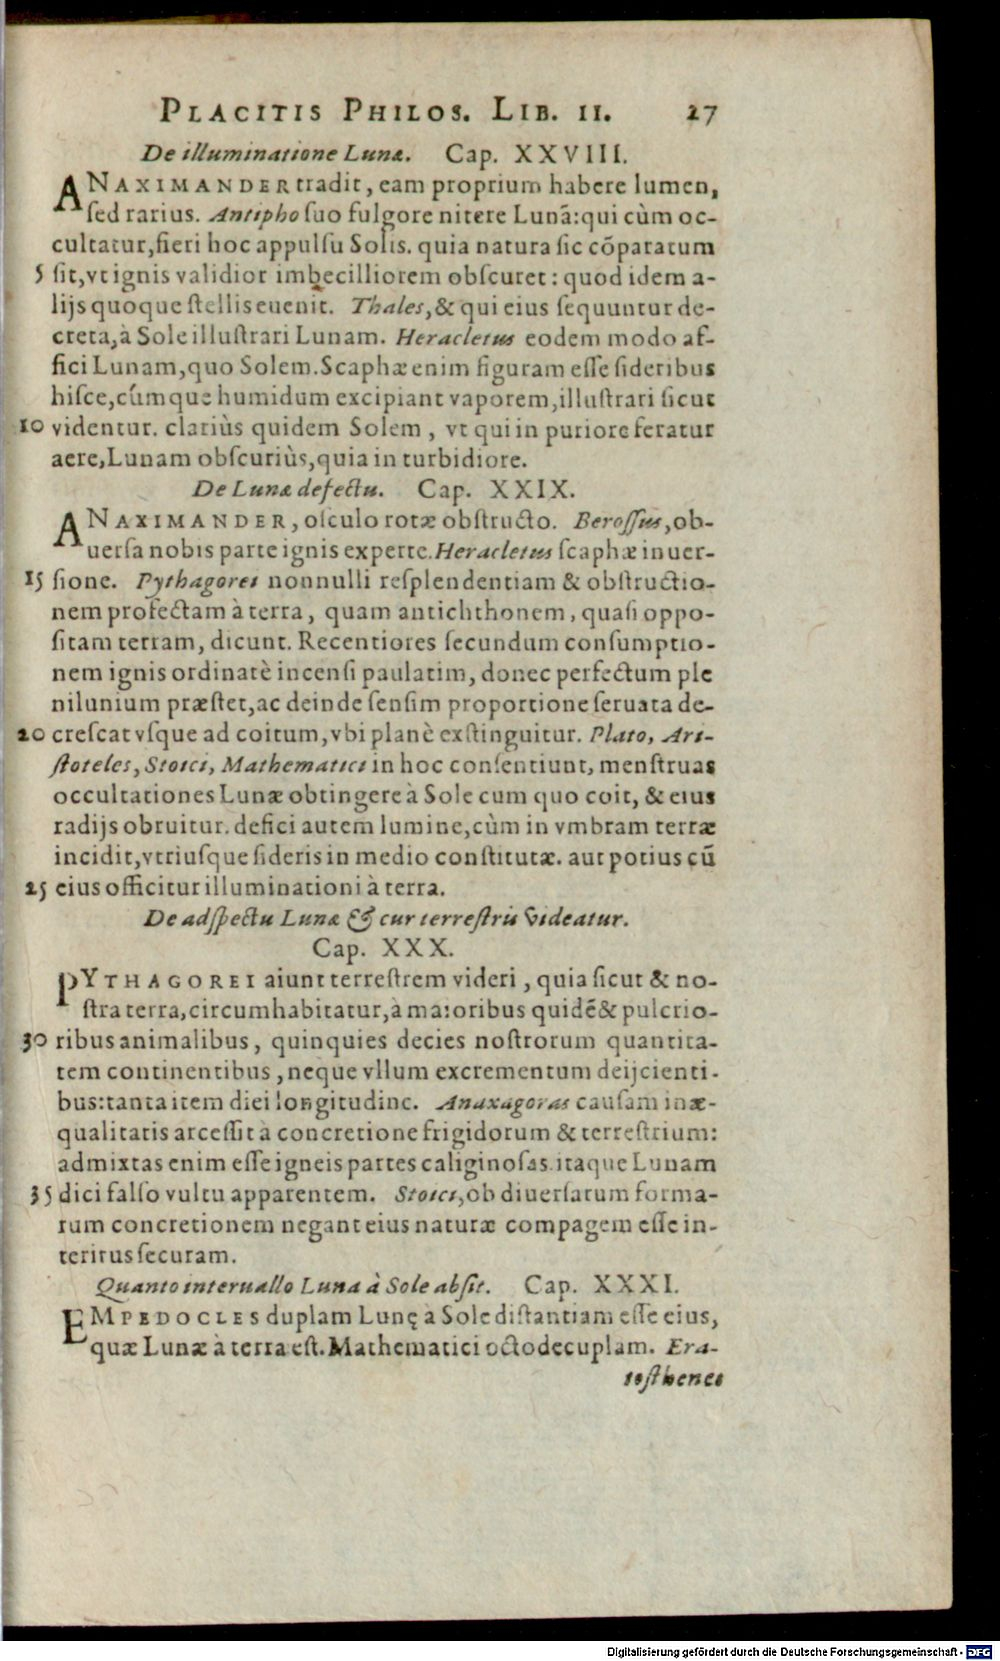 PLACITIS PHILOS. LIB. II. 27
De illuminatione Lunæ. Cap. XXVIII.
ANAXIMANDER tradit, eam proprium habere lumen,
ſed rarius. Antipho ſuo fulgore nitere Lunã: qui cùm oc-
cultatur, fieri hoc appulſu Solis. quia natura ſic cõparatum
5 ſit, vt ignis validior imbecilliorem obſcuret: quod idem a-
lijs quoque ſtellis euenit. Thales, & qui eius ſequuntur de-
creta, à Sole illuſtrari Lunam. Heracletus eodem modo af-
fici Lunam, quo Solem. Scaphæ enim figuram eſſe ſideribus
hiſce, cúmque humidum excipiant vaporem, illuſtrari ſicut
10 videntur. clariùs quidem Solem, vt qui in puriore feratur
aere, Lunam obſcuriùs, quia in turbidiore.
De Lunæ defectu. Cap. XXIX.
ANAXIMANDER, oſculo rotæ obſtructo. Beroſſus, ob-
uerſa nobis parte ignis experte. Heracletus ſcaphæ inuer-
15 ſione. Pythagorei nonnulli reſplendentiam & obſtructio-
nem profectam à terra, quam antichthonem, quaſi oppo-
ſitam terram, dicunt. Recentiores ſecundum conſumptio-
nem ignis ordinatè incenſi paulatim, donec perfectum ple
nilunium præſtet, ac deinde ſenſim proportione ſeruata de-
20 creſcat vſque ad coitum, vbi planè exſtinguitur. Plato, Ari-
ſtoteles, Stoici, Mathematici in hoc conſentiunt, menſtruas
occultationes Lunæ obtingere à Sole cum quo coit, & eius
radijs obruitur. defici autem lumine, cùm in vmbram terræ
incidit, vtriuſque ſideris in medio conſtitutæ. aut potius cũ
25 eius officitur illuminationi à terra.
De adſpectu Lunæ & cur terreſtris videatur.
Cap. XXX.
PYTHAGOREI aiunt terreſtrem videri, quia ſicut & no-
ſtra terra, circumhabitatur, à maioribus quidẽ & pulcrio-
30 ribus animalibus, quinquies decies noſtrorum quantita-
tem continentibus, neque vllum excrementum deijcienti-
bus: tanta item diei longitudine. Anaxagoras cauſam inæ-
qualitatis arceſſit à concretione frigidorum & terreſtrium:
admixtas enim eſſe igneis partes caliginoſas. itaque Lunam
35 dici falſo vultu apparentem. Stoici, ob diuerſarum forma-
rum concretionem negant eius naturæ compagem eſſe in-
teritus ſecuram.
Quanto interuallo Luna à Sole abſit. Cap. XXXI.
EMPEDOCLES duplam Lunę à Sole diſtantiam eſſe eius,
quæ Lunæ à terra eſt. Mathematici octodecuplam. Era-
toſthenes
Digitalisierung gefördert durch die Deutsche Forschungsgemeinschaft - DFG